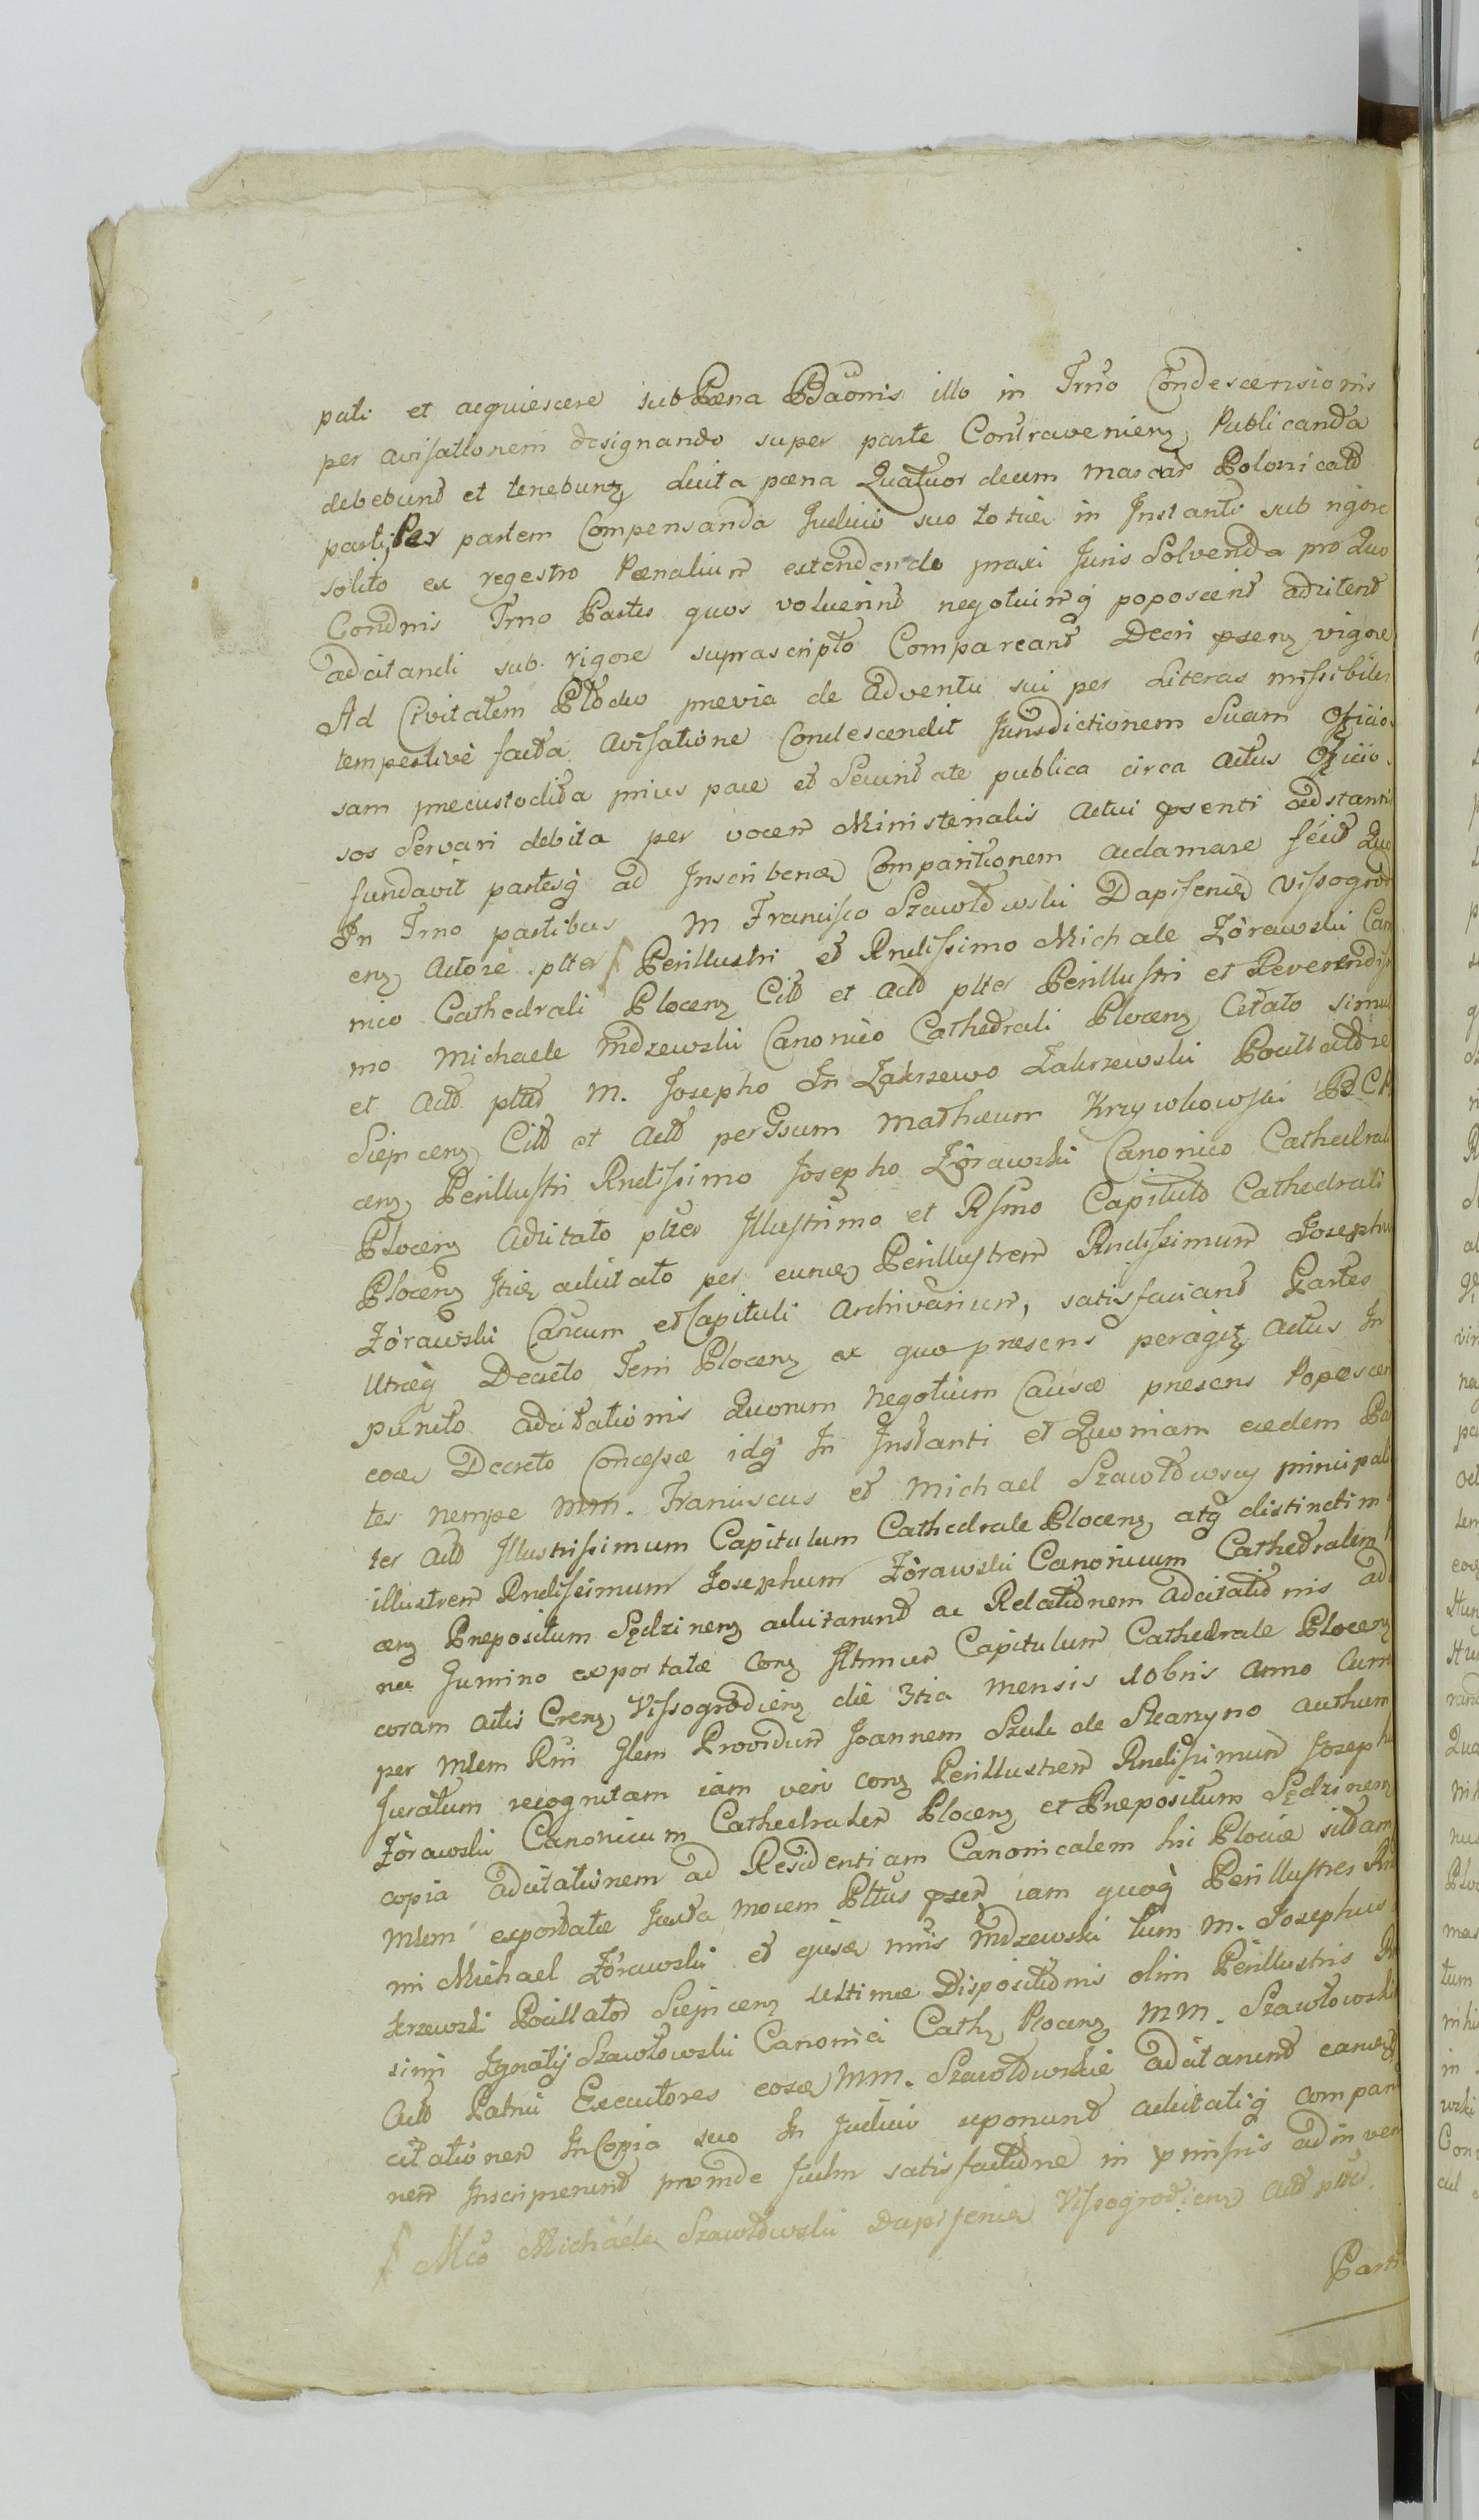 pati et acquiescere sub Pæna Baõnis illo in Trno Condescensionis
per avisationem designando super parte Contravenienȝ Publicanda
debebund et tenebunȝ luita pæna Quatuor decim marcar Polonicald
parti Per partem Compensanda Judicio suo toties in Instanti sub rigore
solito ex regestro Pænalium extendendo praxi Juris Solvenda pro Quo
Condnis Trno Partes quos voluerind negotiumq poposcerit adcitend
adcitandi sub rigore suprascripto Compareant Decri psenȝ vigore
Ad Civitatem Plocko previa de Adventu sui per Literas missibiles
tempestive facta avisatione Condescendit Jurisdictionem Suam officio
sam precustodita prius pace et Securitate publica circa actus officio
sos Servari debita per vocem Ministerialis actui psenti adstantis
fundavit partesq ad Inscribendæ Comparitionem acclamare fécit Quo
In Trno partibus M Francisco Szawłowski Dapifero Vissogrod
enȝ Actore plter ſ Perillustri et Rndissimo Michale Zòrawski Cano
nico Cathedrali Plocenȝ Citd et actd plter Perillustri et Reverendissi
mo Michaele Mdzewski Canonico Cathedrali Plocenȝ Citato simul
et Actd plter M. Josepho In Zakrzewo Zakrzewski Pocillatore
Sierpcenȝ Citd et Actd per Gsum Mathæum Krzywkowski BCP
cenȝ Perillustri Rndissimo Josepho Zòrawski Canonico Cathedrali
Plocenȝ Adcitato plter Illustrimo et Rsmo Capitulo Cathedrali
Plocenȝ Itid adcitato per eund Perillustrem Rndissimum Josephum
Zòrawski Cañcum et Capituli Archivarium, satisfaciant Partes
Utræq Decreto Terri Plocenȝ ex quo presens peragitȝ actus In
puncto adcitationis Quorum negotium Causæ presens Poposcerit
eod Decreto Concessæ idq In Instanti et Quoniam eædem Par
tes nempe MM. Franciscus et Michael Szawłowscy principali
ter Actd Illustrissimum Capitulum Cathedrale Plocenȝ atq distinctim
illustrem Rndissimum Josephum Zòrawski Canonicum Cathedralem
cenȝ Prepositum Sędzinenȝ adcitarund ac Relationem adcitationis ad
na Jumino exportatæ Conȝ Illtrmum Capitulum Cathedrale Plocenȝ
coram actis Crenȝ Vissogrodienȝ die 3tia mensis 10bris anno Curr
per Mlem Rni Glem Providum Joannem Szulc de Skarzyno authum
Juratum recognitam iam vero conȝ Perillustrem Rndissimum Joseph
Zòrawski Canonicum Cathedralem Plocenȝ et Prepositum Sędzinenȝ
copia adcitationem ad Residentiam Canonicalem hic Plociæ sitam
Mlem exportatæ Juxta morem Pltus pser iam quoq Perillustres Rn
mi Michael Zòrawski et ejusd nnis Mdzewski tum M. Josephus
krzewski Pocillator Sierpcenȝ ultimæ Dispositionis olim Perillustris R
simi Ignatij Szawłowski Canonici Cathȝ Plocenȝ MM. Szawłowski
Actd Patrui Executores eosd MM. Szawłowskie adcitarund eandȝ
citationem In Copia suo In Judicio reponund adcitatiq compari
nem Inscripserund proinde Judm satisfactione in pmissis adinven
ſ Mco Michäéle Szawłowski Dapifero Vissogrodienȝ Actd plter.
Parti